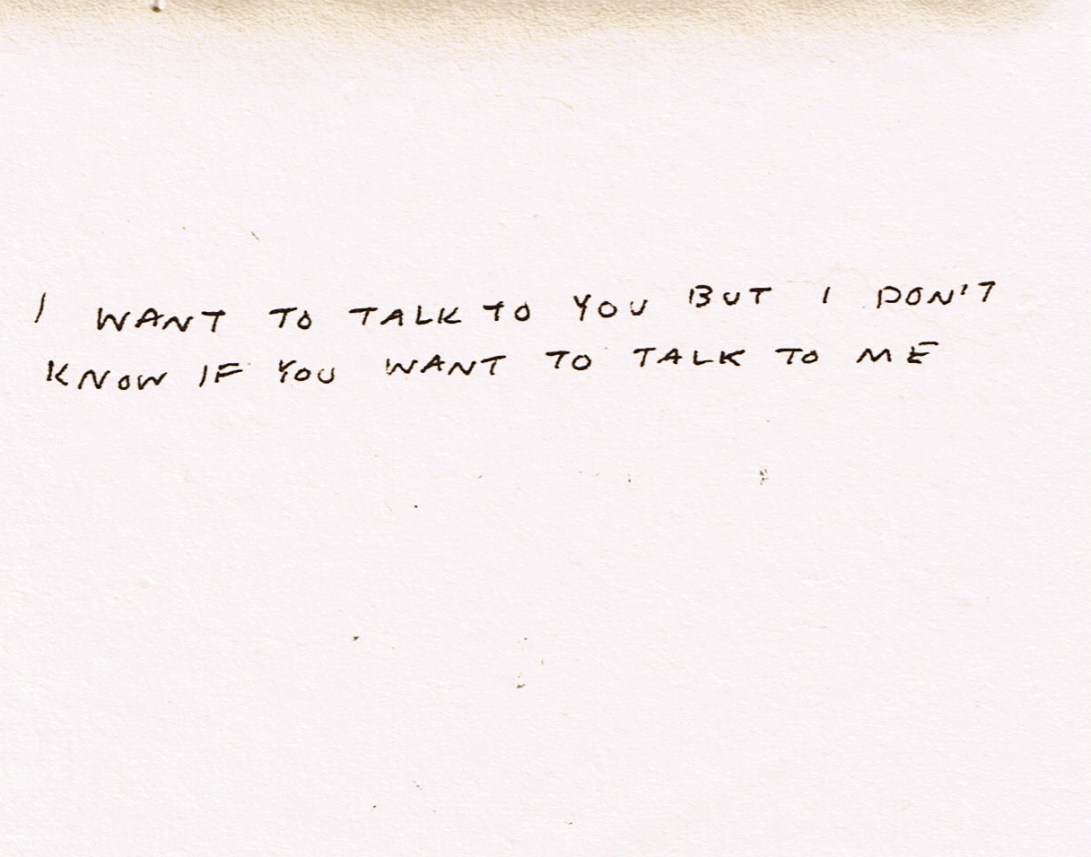 I WANT TO TALK TO YOU BUT I DON'T
KNOW IF YOU WANT TO TALK TO ME